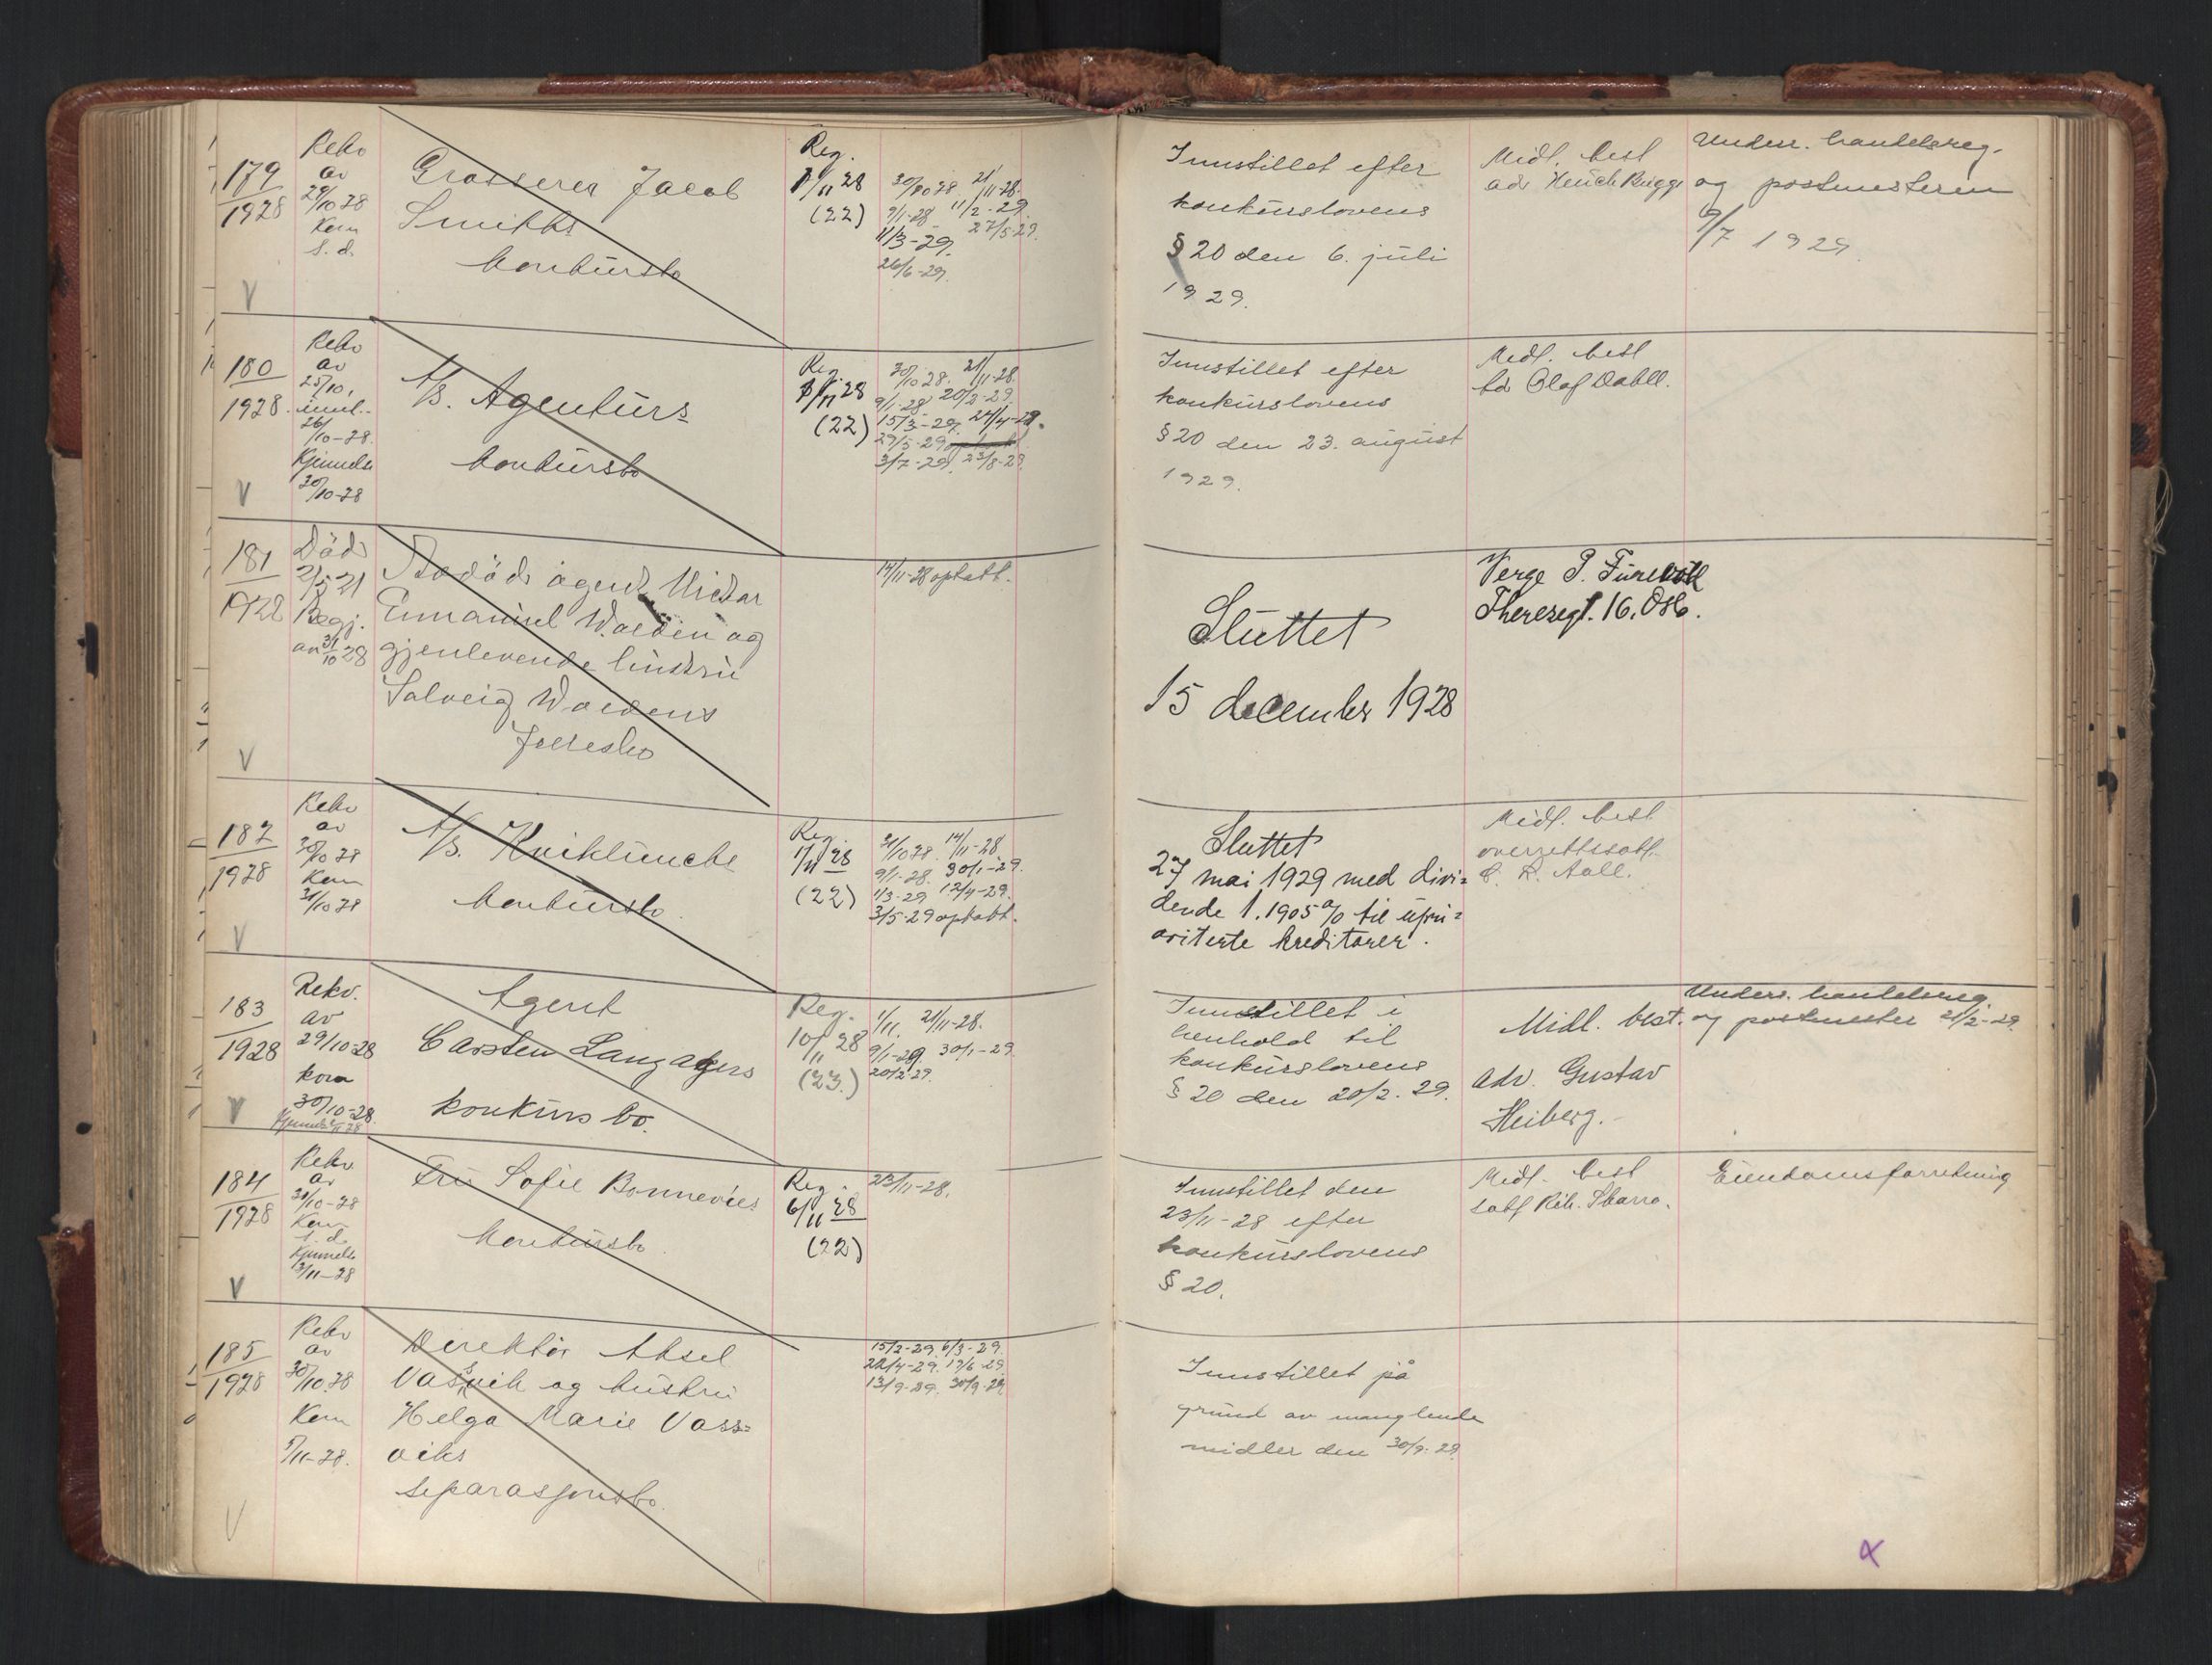 179
1928
Rekv
av
29/10 28
Kom
s. d.
V
Grosserer Jacob
Smiths
konkursbo
Reg.
1/11 28
(22)
30/10 28 21/11-28.
9/1-28 11/2-29.
11/3-29. 27/5-29.
26/6-29.
Innstillet efter
konkurslovens
§ 20 den 6. juli
1929.
Midl. best
adv Henrich Bugge
Underr. handelsreg.
og postmesteren
9/7 1929.
180
1928.
Rekv
av
25/10,
innl.
26/10-28.
Kjennelse
30/10-28
V
A/S. Agenturs
konkursbo
Reg.
1/11 28
(22)
30/10 28. 21/11-28.
9/1-28 20/2-29.
15/3-29. 24/4-29.
29/5-29
3/7-29. 23/8-29.
Innstillet efter
konkurslovens
§ 20 den 23. august
1929.
Midl. best
Olaf Dahll.
181
1928
Död
2/5 21
Begj.
av 31/10 28
V
Avdöde agent
Emmanuel og
gjenlevende hustru
Solveig
Fellesbo
14/11-28 optatt.
Sluttet
15 december 1928
Verge P. Furevoll
Theresegt. 16. Oslo.
182
1928
Rekv
av
30/10 28
Kom
31/10 28
V
A/S. Kviklunchs
konkursbo.
Reg.
1/11 28
(22)
31/10 28. 14/11-28
9/1-28. 30/1-29.
1/3-29 12/4-29.
3/5-29 optatt.
Sluttet
27 mai 1929 med divi=
dende 1.1905 % til upri=
oriterte kreditorer.
Midl. best
overrettssakf.
Aall.
183
1928
Rekv.
av
29/10-28
kom
30/10-28.
V
Agent
Carsten Langakers
konkurs bo.
Reg.
10/11 28
(23.)
1/11. 21/11-28.
9/1-29. 30/1-29.
20/2 29.
Innstillet i
henhold til
konkurslovens
§ 20 den 20/2. 29.
Midl. best.
adv. Gustav
Heiberg.-
Underr. handelsreg.
og postmester 21/2-29.
184
1928
Rekv
av
30/10-28
Kom
s. d.
Kjennelse
3/11-28
V
Fru Sofie Bonnevies
konkursbo.
Reg.
6/11 28
(22)
23/11-28.
Innstillet den
23/11-28 efter
konkurslovens
§ 20.
Midl. best
sakf Rih. Skarre.
Eiendomsforretning
185
1928
Rekv
av
30/10.28
Kom
5/11-28.
V
Direktör Aksel
Vasvik og hustru
Helga Marie Vass=
viks
separasjonsbo.
15/2-29. 6/3-29.
22/4-29. 19/6-29
13/9-29. 30/9-29
Innstillet på
grund av manglende
midler den 30/9-29.
x